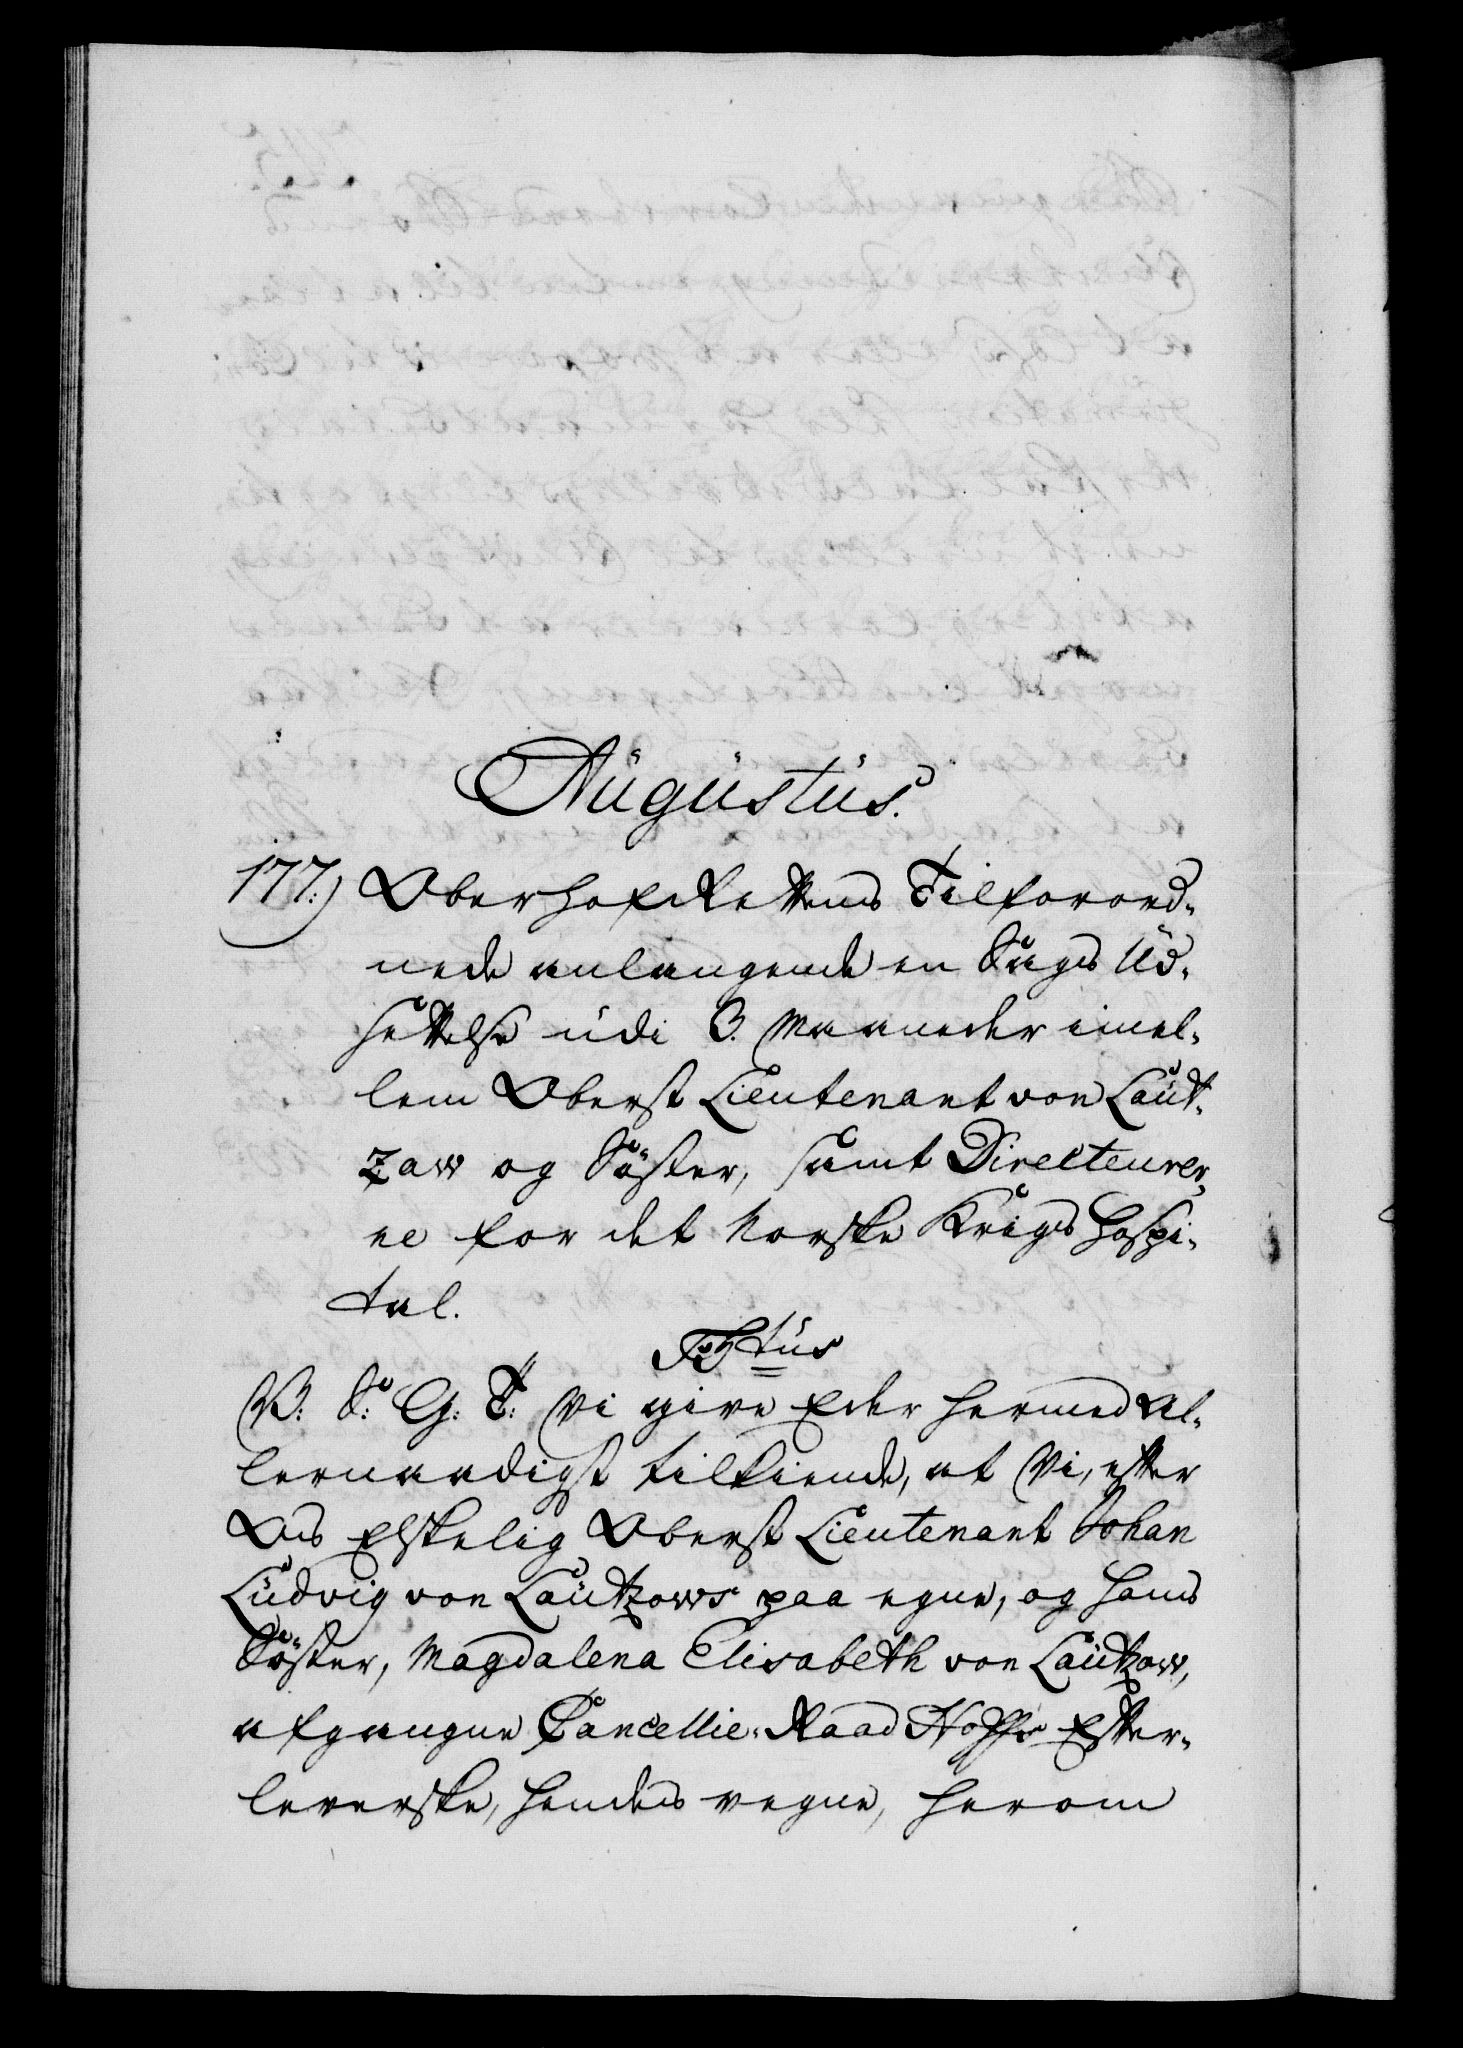 Augustus.
177.) Oberhofrettens Tilforord-
nede anlangende en Sags Ud-
settelse udi 3. Maaneder imel-
lem Oberst Lieutenant von Laut-
zow og Søster, samt Directeurer-
ne for det Norske Krigs Hospi-
tal.
V: S: G: T: Vi give Eder hermed Al-
lernaadigst tilkiende, at Vi, efter
Os Elskelig Oberst Lieutenant Johan
Ludvig von Lautzows paa egne, og hans
Søster, Magdalena Elisabeth von Lautzow,
afgangne Cancellie-Raad Hoffs Efter-
leverske, hendes vegne, herom